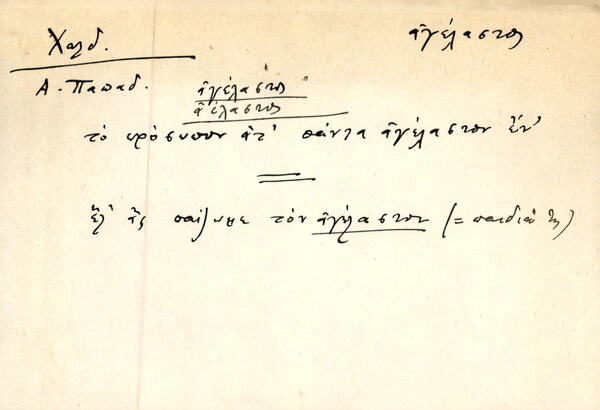 Χαλδ. ἀγέλαστος
Α. Παπαδ. ἀγέλαστος
ἀέλαστος
τὸ πρόσωπον ἀτ' πάντα ἀγέλαστον ἔν'
ἔλ' ἂς παίζωμε τὸν ἀγέλαστον (= παιδιά τις)